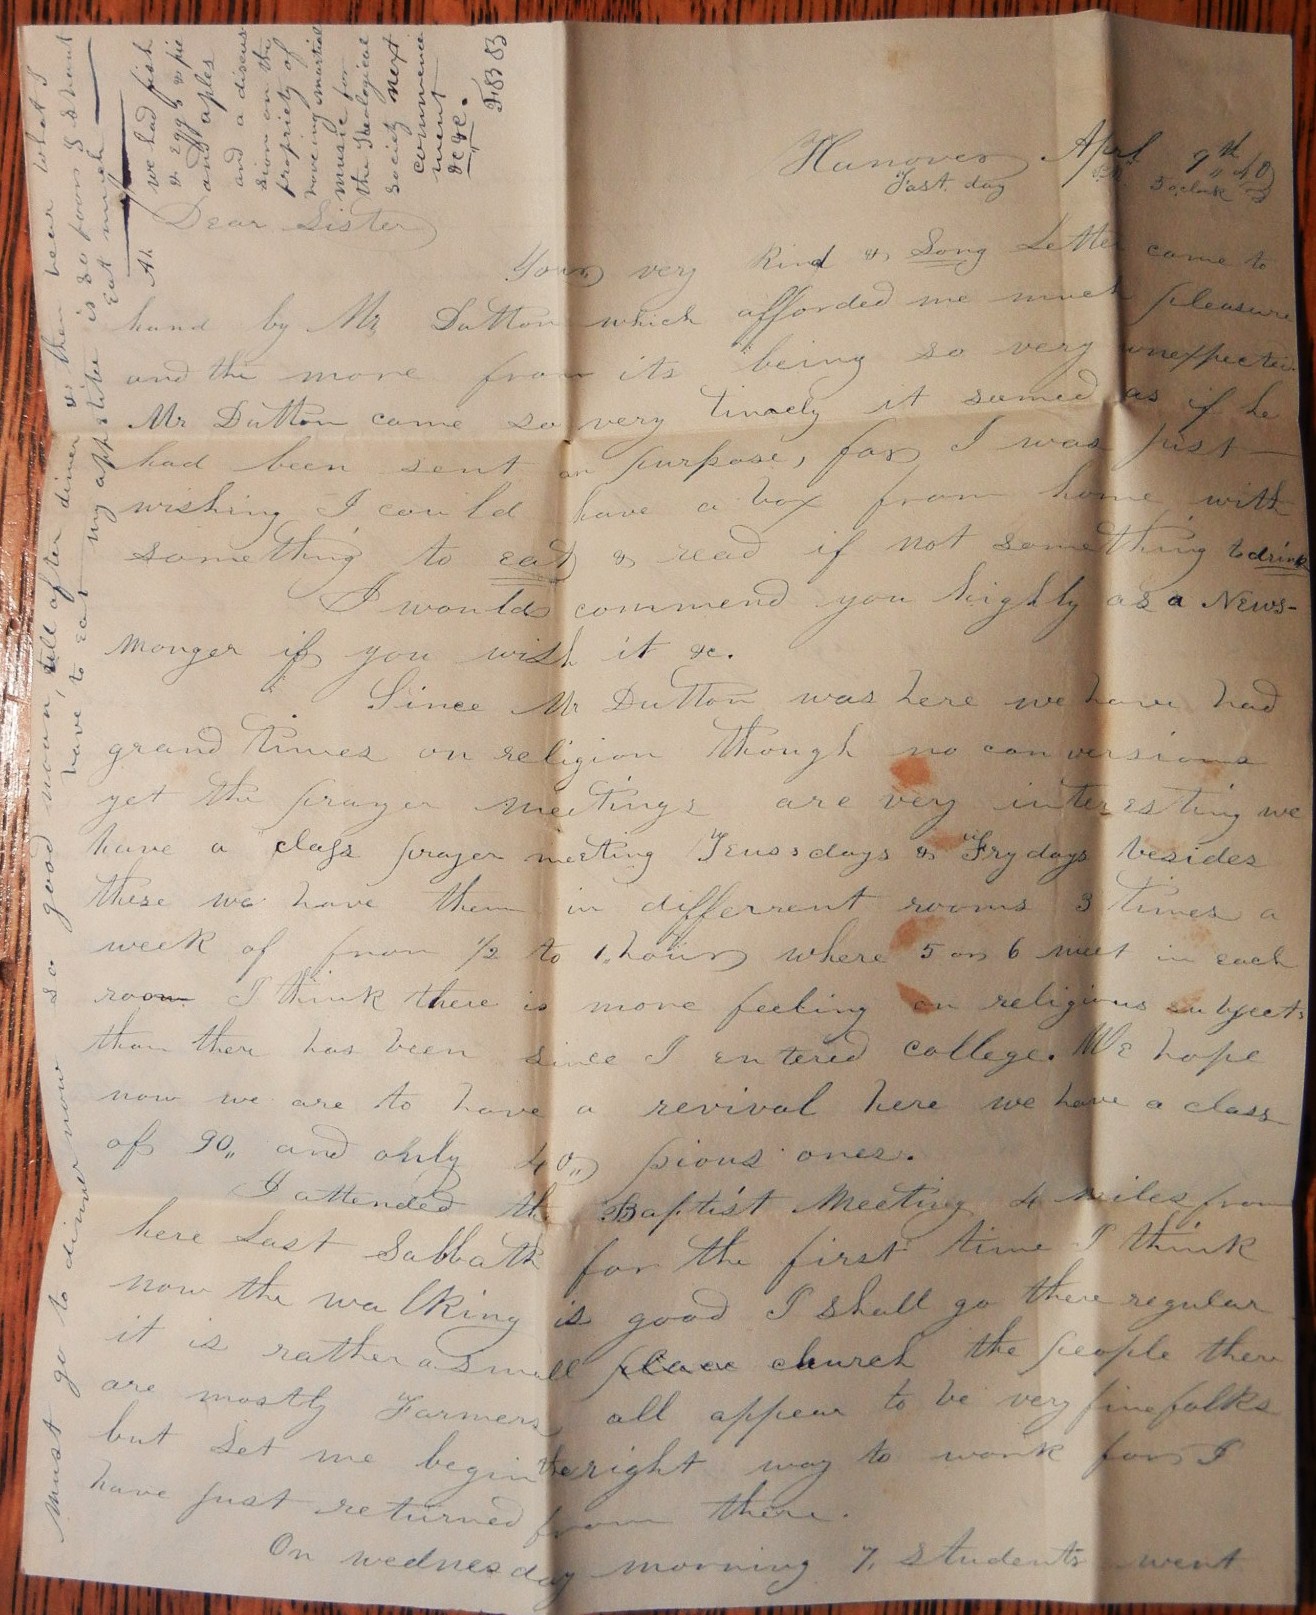 Hanover April 9th 40
Fast day 5 oclock
Dear Sister
Your very kind & Long Letter came to
hand by Mr Dutton which afforded me much pleasure
and the more from its being so very unexpected.
Mr Dutton came so very timely it seemed as if he
had been sent on purpose, for I was just
wishing I could have a box from home with
something to eat & read if not something to drink
I would commend you highly as a News-
monger if you wish it &c.
Since Mr Dutton was here we have had
grand times on religion though no conversions
yet the prayer meetings are very interesting we
have a class prayer meeting Teusdays & Frydays besides
these we have them in differrent rooms 3 times a
week of from 1/2 to 1 hour where 5 or 6 meet in each
room I think there is more feeling on religious subjects
than there has been since I entered college. We hope
now we are to have a revival here we have a class
of 90,, and only 40,, pious ones.
I attended the Baptist Meeting 4 miles from
here Last Sabbath for the first time I think
now the walking is good I shall go there regular
it is rather a small place church the people there
are mostly Farmers all appear to be very fine folks
but Let me begin the right way to work for I
have just returned from there.
On wednesday morning 7, students went
must go to dinner now so good noon, till after dinner & then hear what I
have to eat my appetite is so poor I shant
eat much
Ah
we had fish
& Eggs & pie
and aples
and a discus
sion on the
propriety of
haveing martial
music for
the Theological
Society next
commence
ment
&c &c.